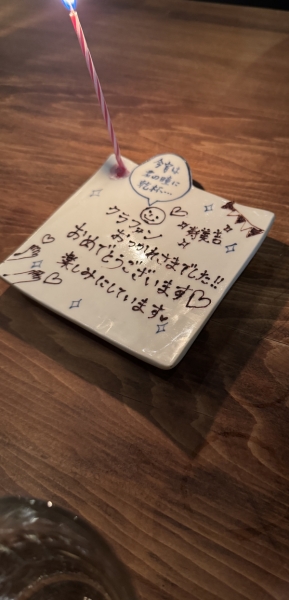 今宵は
君の瞳に
乾杯…
クラファン
おつかれさまでした!!
おめでとうございます♡
楽しみにしています♥